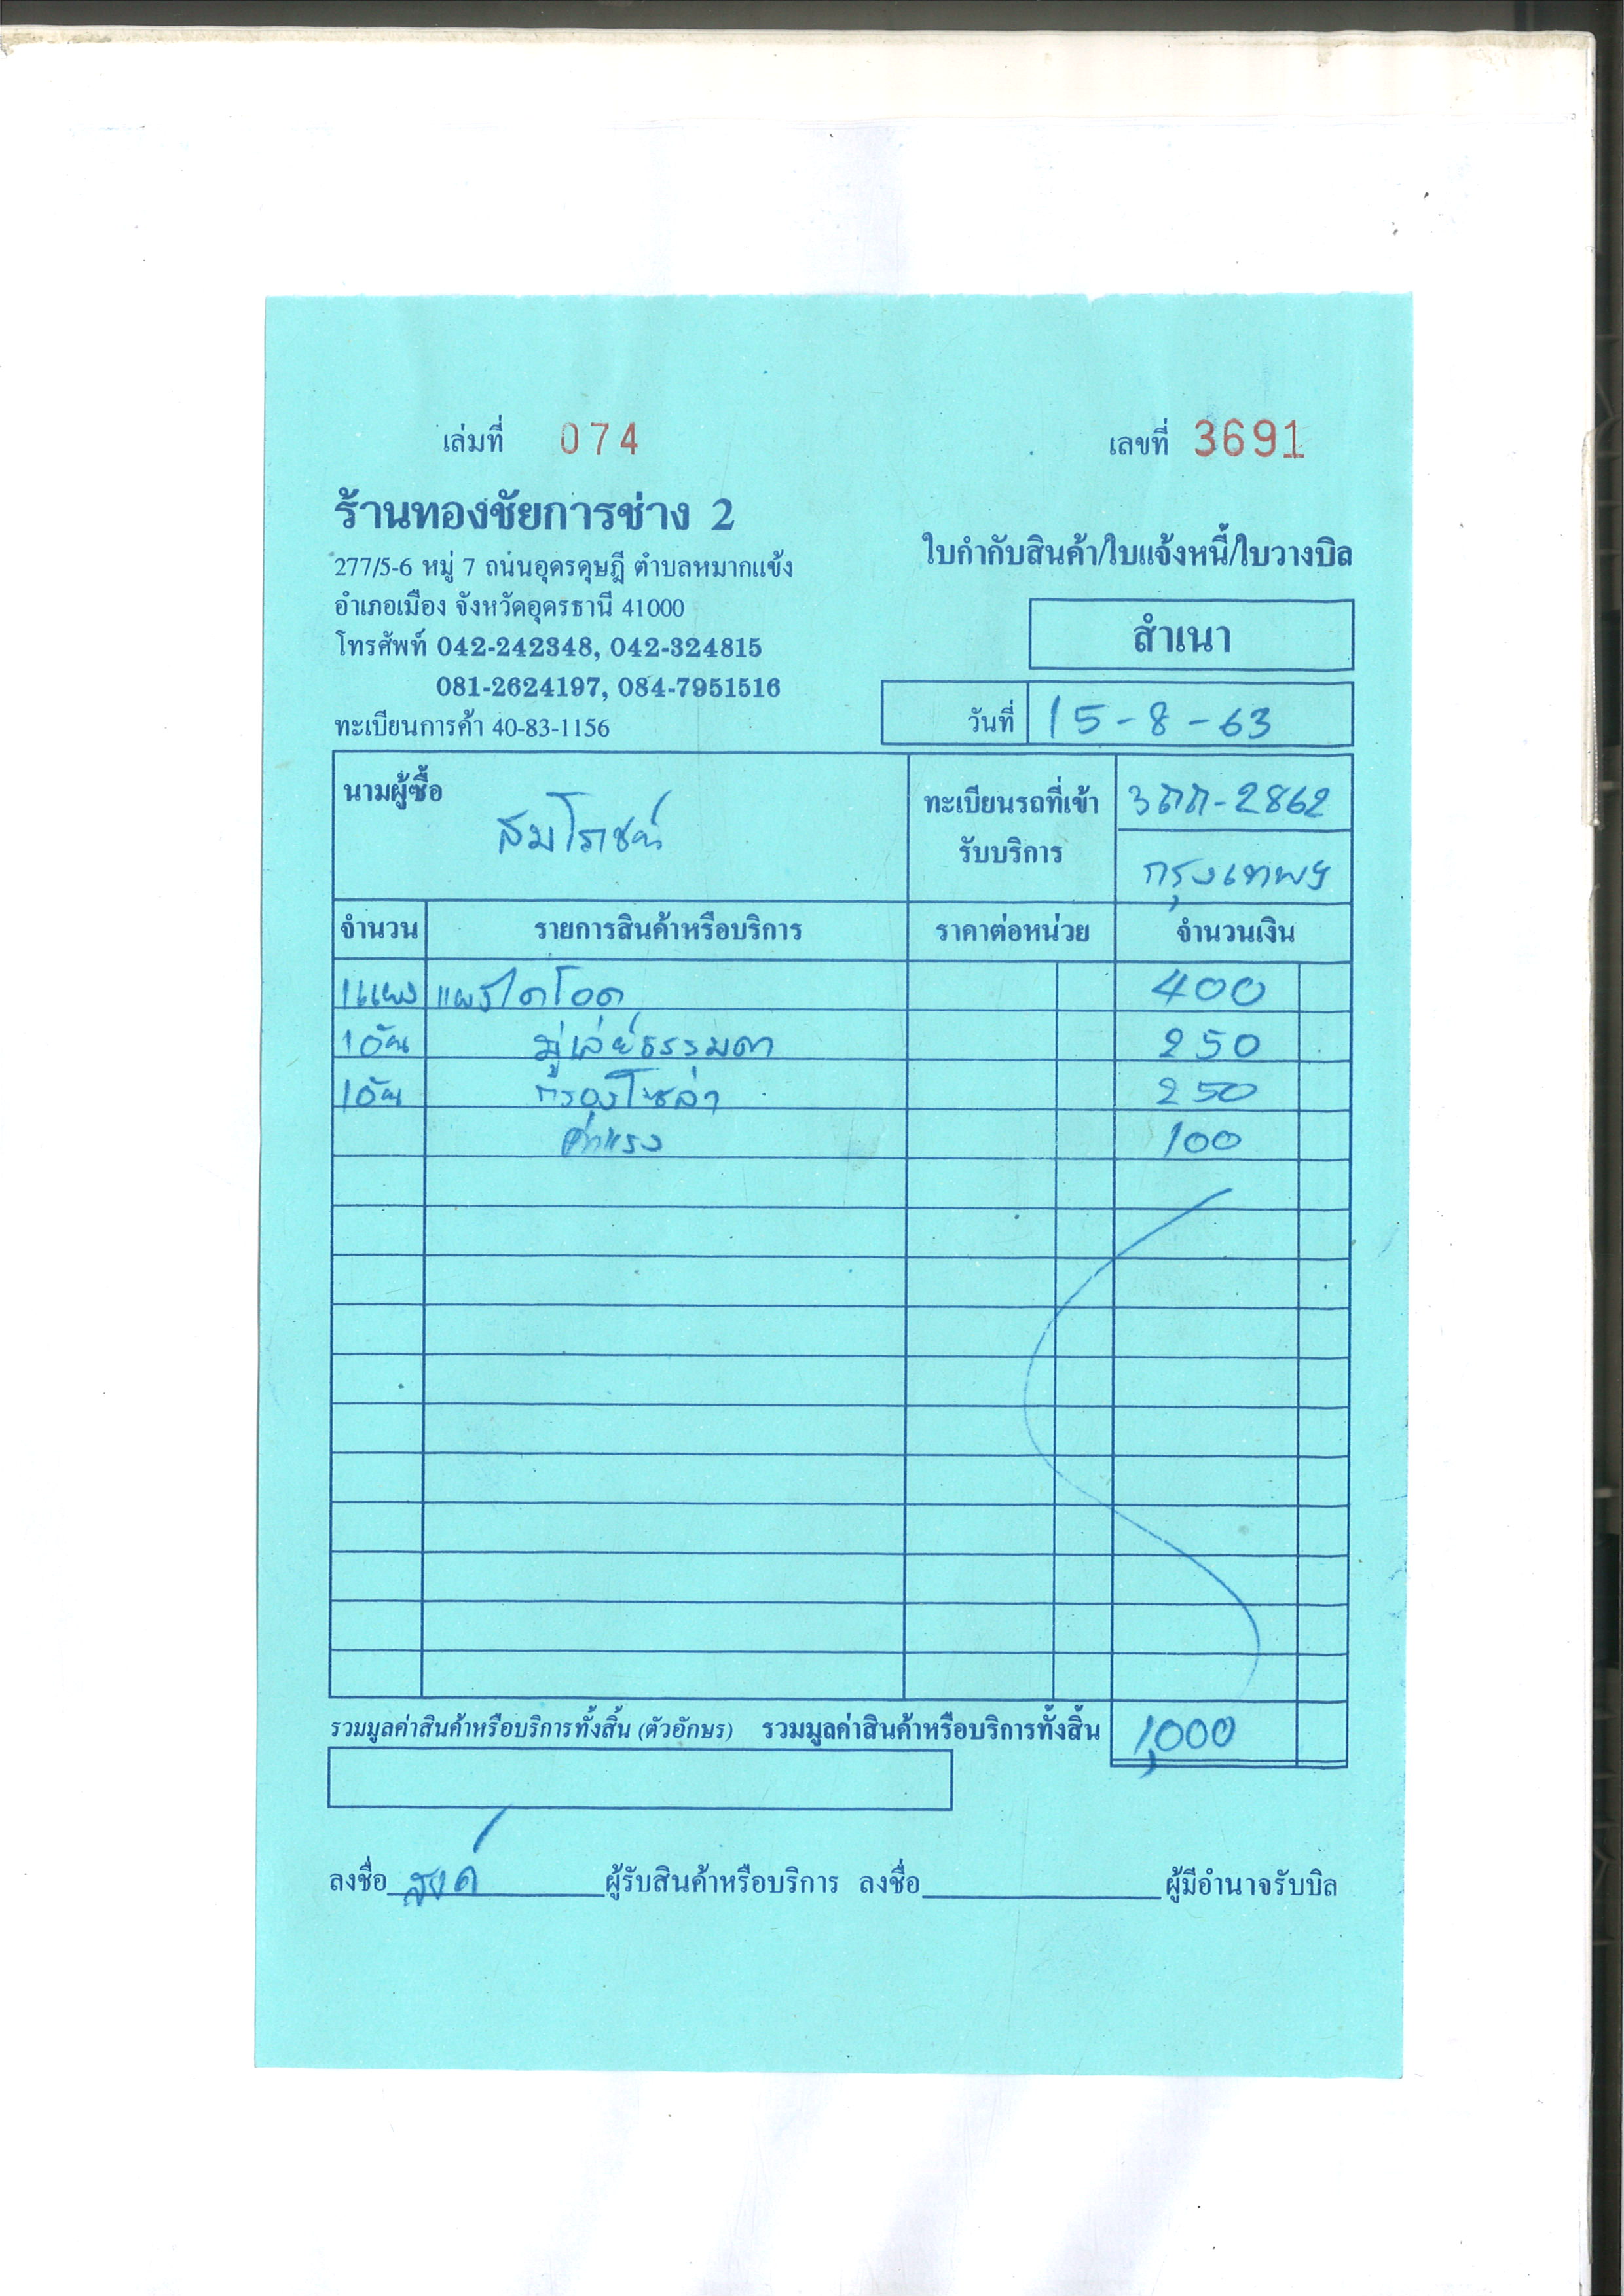 เล่มที่ 074 เลขที่ 3691
ร้านทองชัยการช่าง 2
277/5-6 หมู่ 7 ถนนอุดรดุษฎี ตำบลหมากแข้ง
อำเภอเมือง จังหวัดอุดรธานี 41000
โทรศัพท์ 042-242348, 042-324815
081-2624197, 084-7951516
ทะเบียนการค้า 40-83-1156
ใบกำกับสินค้า/ใบแจ้งหนี้/ใบวางบิล
สำเนา
วันที่ 15-8-63
นามผู้ซื้อ สมโรชน์
ทะเบียนรถที่เข้ารับบริการ 3ฒฌ-2862
กรุงเทพฯ
จำนวน รายการสินค้าหรือบริการ ราคาต่อหน่วย จำนวนเงิน
1แผง แผงไดโอด 400
1อัน มู่เล่ย์ธรรมดา 250
1อัน กรองโซล่า 250
ค่าแรง 100
รวมมูลค่าสินค้าหรือบริการทั้งสิ้น (ตัวอักษร) รวมมูลค่าสินค้าหรือบริการทั้งสิ้น 1,000
ลงชื่อ ผู้รับสินค้าหรือบริการ ลงชื่อ ผู้มีอำนาจรับบิล